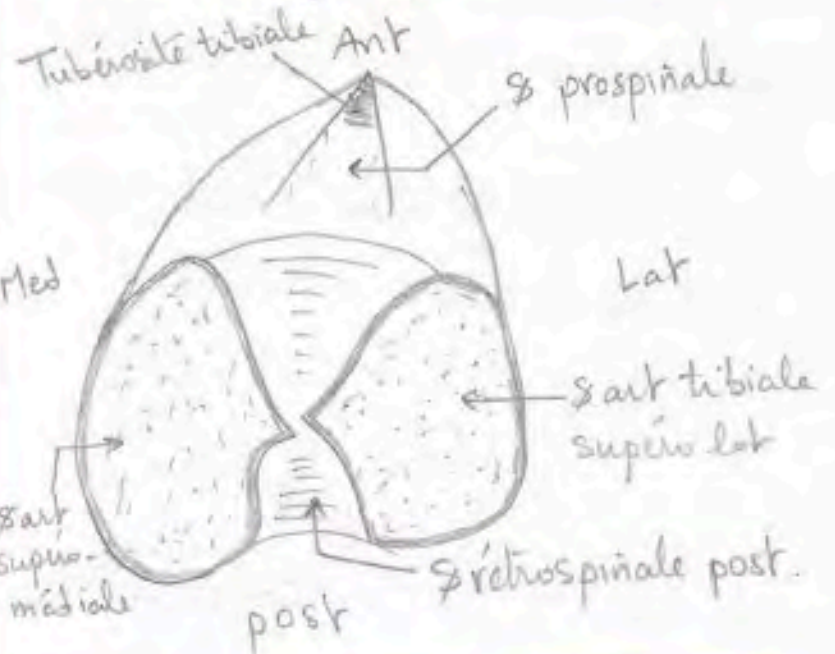 Tubérosité tibiale
Ant
& prospinale
Med
Lat
& art tibiale
supéro lat
& art
supéro-
médiale
& rétrospinale post.
post